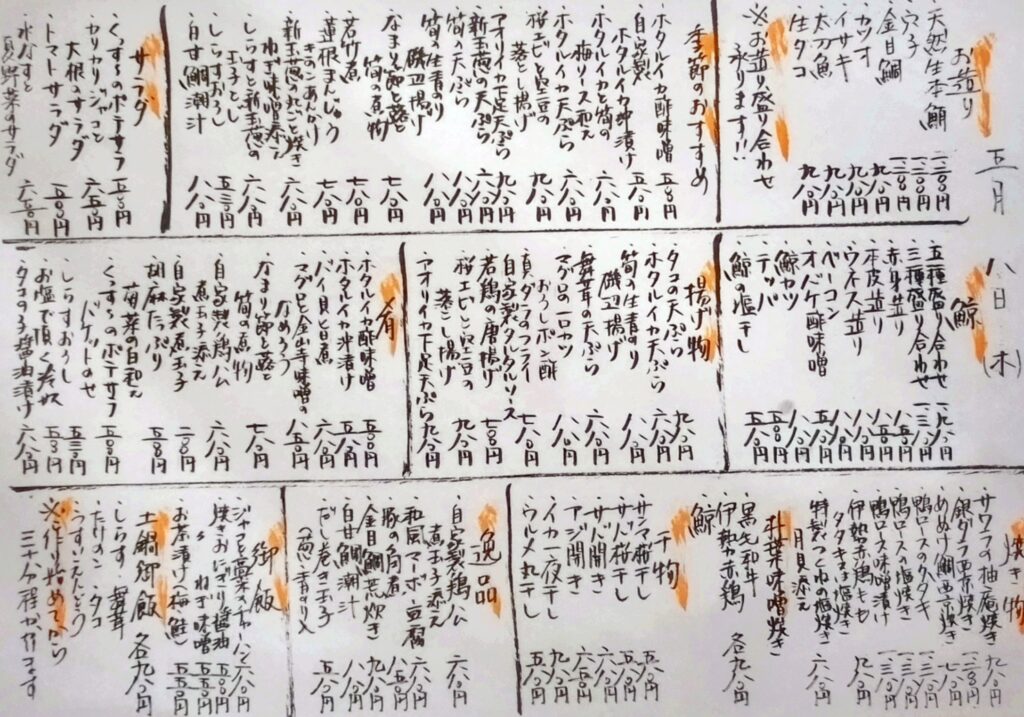 五月八日(木)
お造り
・天然生本鮪 一二八〇円
・穴子 一二八〇円
・金目鯛 一二八〇円
・カツオ 九八〇円
・イサキ 九八〇円
・太刀魚 九八〇円
・生タコ 九八〇円
※お造り盛り合わせ
承ります!!
季節のおすすめ
・ホタルイカ酢味噌 五八〇円
・自家製
ホタルイカ沖漬け 五八〇円
・ホタルイカと筍の
梅ソース和え 六八〇円
・ホタルイカ天ぷら 六八〇円
・桜エビと空豆の
落とし揚げ 九八〇円
・アオリイカ下足天ぷら 九八〇円
・新玉葱の天ぷら 六八〇円
・筍の天ぷら 八八〇円
・筍の生青のり
磯辺揚げ 八八〇円
・なまり節と蕗と
筍の煮物 七八〇円
・若竹煮 七八〇円
・蓮根まんじゅう
きのこあんかけ 七八〇円
・新玉葱の丸ごと焼き
ねぎ味噌添え 六八〇円
・しらすと新玉葱の
玉子とじ 六八〇円
・しらすおろし 五三〇円
・白甘鯛潮汁 八八〇円
サラダ
・くっすーのポテサラ 五八〇円
・カリカリジャコと
大根のサラダ 六五〇円
・トマトサラダ 五八〇円
・水なすと
夏野菜のサラダ 六八〇円
鯨
・五種盛り合わせ 一九八〇円
・三種盛り合わせ 一三八〇円
・赤身造り
・本皮造り
・ウネス造り
・ベーコン
・オバケ酢味噌
・鯨カツ
・テッパ
・鯨の塩干し
揚げ物
・タコの天ぷら 九八〇円
・ホタルイカ天ぷら 六八〇円
・筍の生青のり
磯辺揚げ 八八〇円
・マグロの一口カツ
おろしポン酢
・舞茸の天ぷら
・真ダラのフライ
自家製タルタルソース 七八〇円
・若鶏の唐揚げ 七八〇円
・桜エビと空豆の
落とし揚げ 九八〇円
・アオリイカ下足天ぷら 九八〇円
肴
・ホタルイカ酢味噌 五八〇円
・ホタルイカ沖漬け 五八〇円
・バイ貝と旨煮 六八〇円
・マグロと金山寺味噌の
なめろう 八五〇円
・なまり節と蕗と
筍の煮物 七八〇円
・自家製鶏ハム
煮玉子添え 六八〇円
・自家製煮玉子 二八〇円
・菊菜の白和え
胡麻たっぷり 五八〇円
・くっすーのポテサラ
バケットのせ 五八〇円
・しらすおろし 五三〇円
・お塩で頂く冷奴 五八〇円
・タコの子醤油漬け 六八〇円
焼き物
・サワラの柚庵焼き 九八〇円
・銀ダラ西京焼き 一二八〇円
・あめけ鯛西京焼き
・鴨ロースのタタキ 一三八〇円
・鴨ロースの塩焼き 一三八〇円
・鴨ロース味噌漬け 一三八〇円
・伊勢赤鶏ももも
タタキまた塩焼き 九八〇円
・特製つくねの塩焼き
月見添え 六八〇円
朴葉味噌焼き
・黒毛和牛
・伊勢赤鶏
・鯨 各九八〇円
干物
・サンマ桜干し 五八〇円
・サバ桜干し
・サバ開き
・アジ開き 六五〇円
・イカ一夜干し 九八〇円
・ウルメ丸干し 五八〇円
逸品
・自家製鶏ハム
煮玉子添え 六八〇円
・和風マーボ豆腐 六八〇円
・豚の角煮
・金目鯛荒炊き 九八〇円
・白甘鯛潮汁 八八〇円
・だし巻き玉子
(葱・青のり入) 五八〇円
御飯
・ジャコと葉のチャーハン 六八〇円
・焼きおにぎり醤油 五五〇円
・〃 ねぎ味噌 五五〇円
・お茶漬け(梅・鮭) 五五〇円
土鍋御飯 各九八〇円
・しらす・舞茸
・たけのこ・タコ
・うすいえんどう
※ご注文を作り始めてから
三十分程かかります